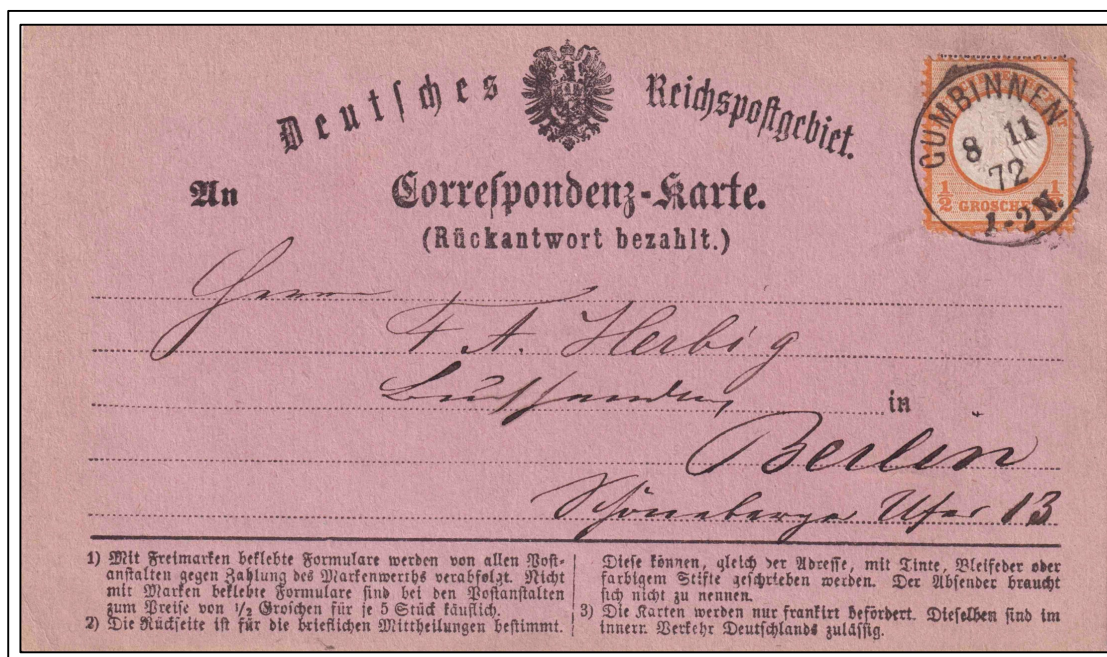 Deutsches Reichspostgebiet.
GUMBINNEN
8 11
72
1-2N.
1/2 GROSCHEN 1/2
An
Correspondenz-Karte.
(Rückantwort bezahlt.)
Herrn
F. A. Herbig
in
Berlin
Schöneberger Ufer 13
1) Mit Freimarken beklebte Formulare werden von allen Post-
anstalten gegen Zahlung des Markenwerths verabfolgt. Nicht
mit Marken beklebte Formulare sind bei den Postanstalten
zum Preise von 1/2 Groschen für je 5 Stück käuflich.
2) Die Rückseite ist für die brieflichen Mittheilungen bestimmt.
Diese können, gleich der Adresse, mit Tinte, Bleifeder oder
farbigem Stifte geschrieben werden. Der Absender braucht
sich nicht zu nennen.
3) Die Karten werden nur frankirt befördert. Dieselben sind im
innern Verkehr Deutschlands zulässig.